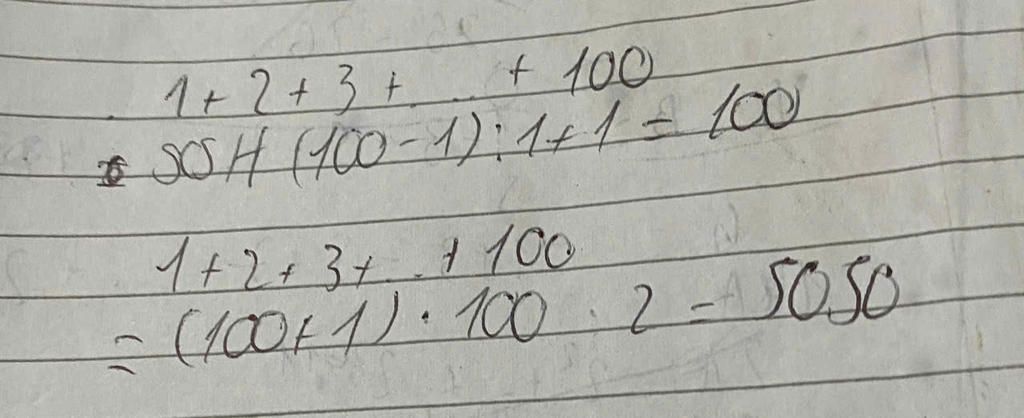 1 + 2 + 3 + ... + 100
SSH (100 - 1) : 1 + 1 = 100
1 + 2 + 3 + ... + 100
= (100 + 1) . 100 : 2 = 5050